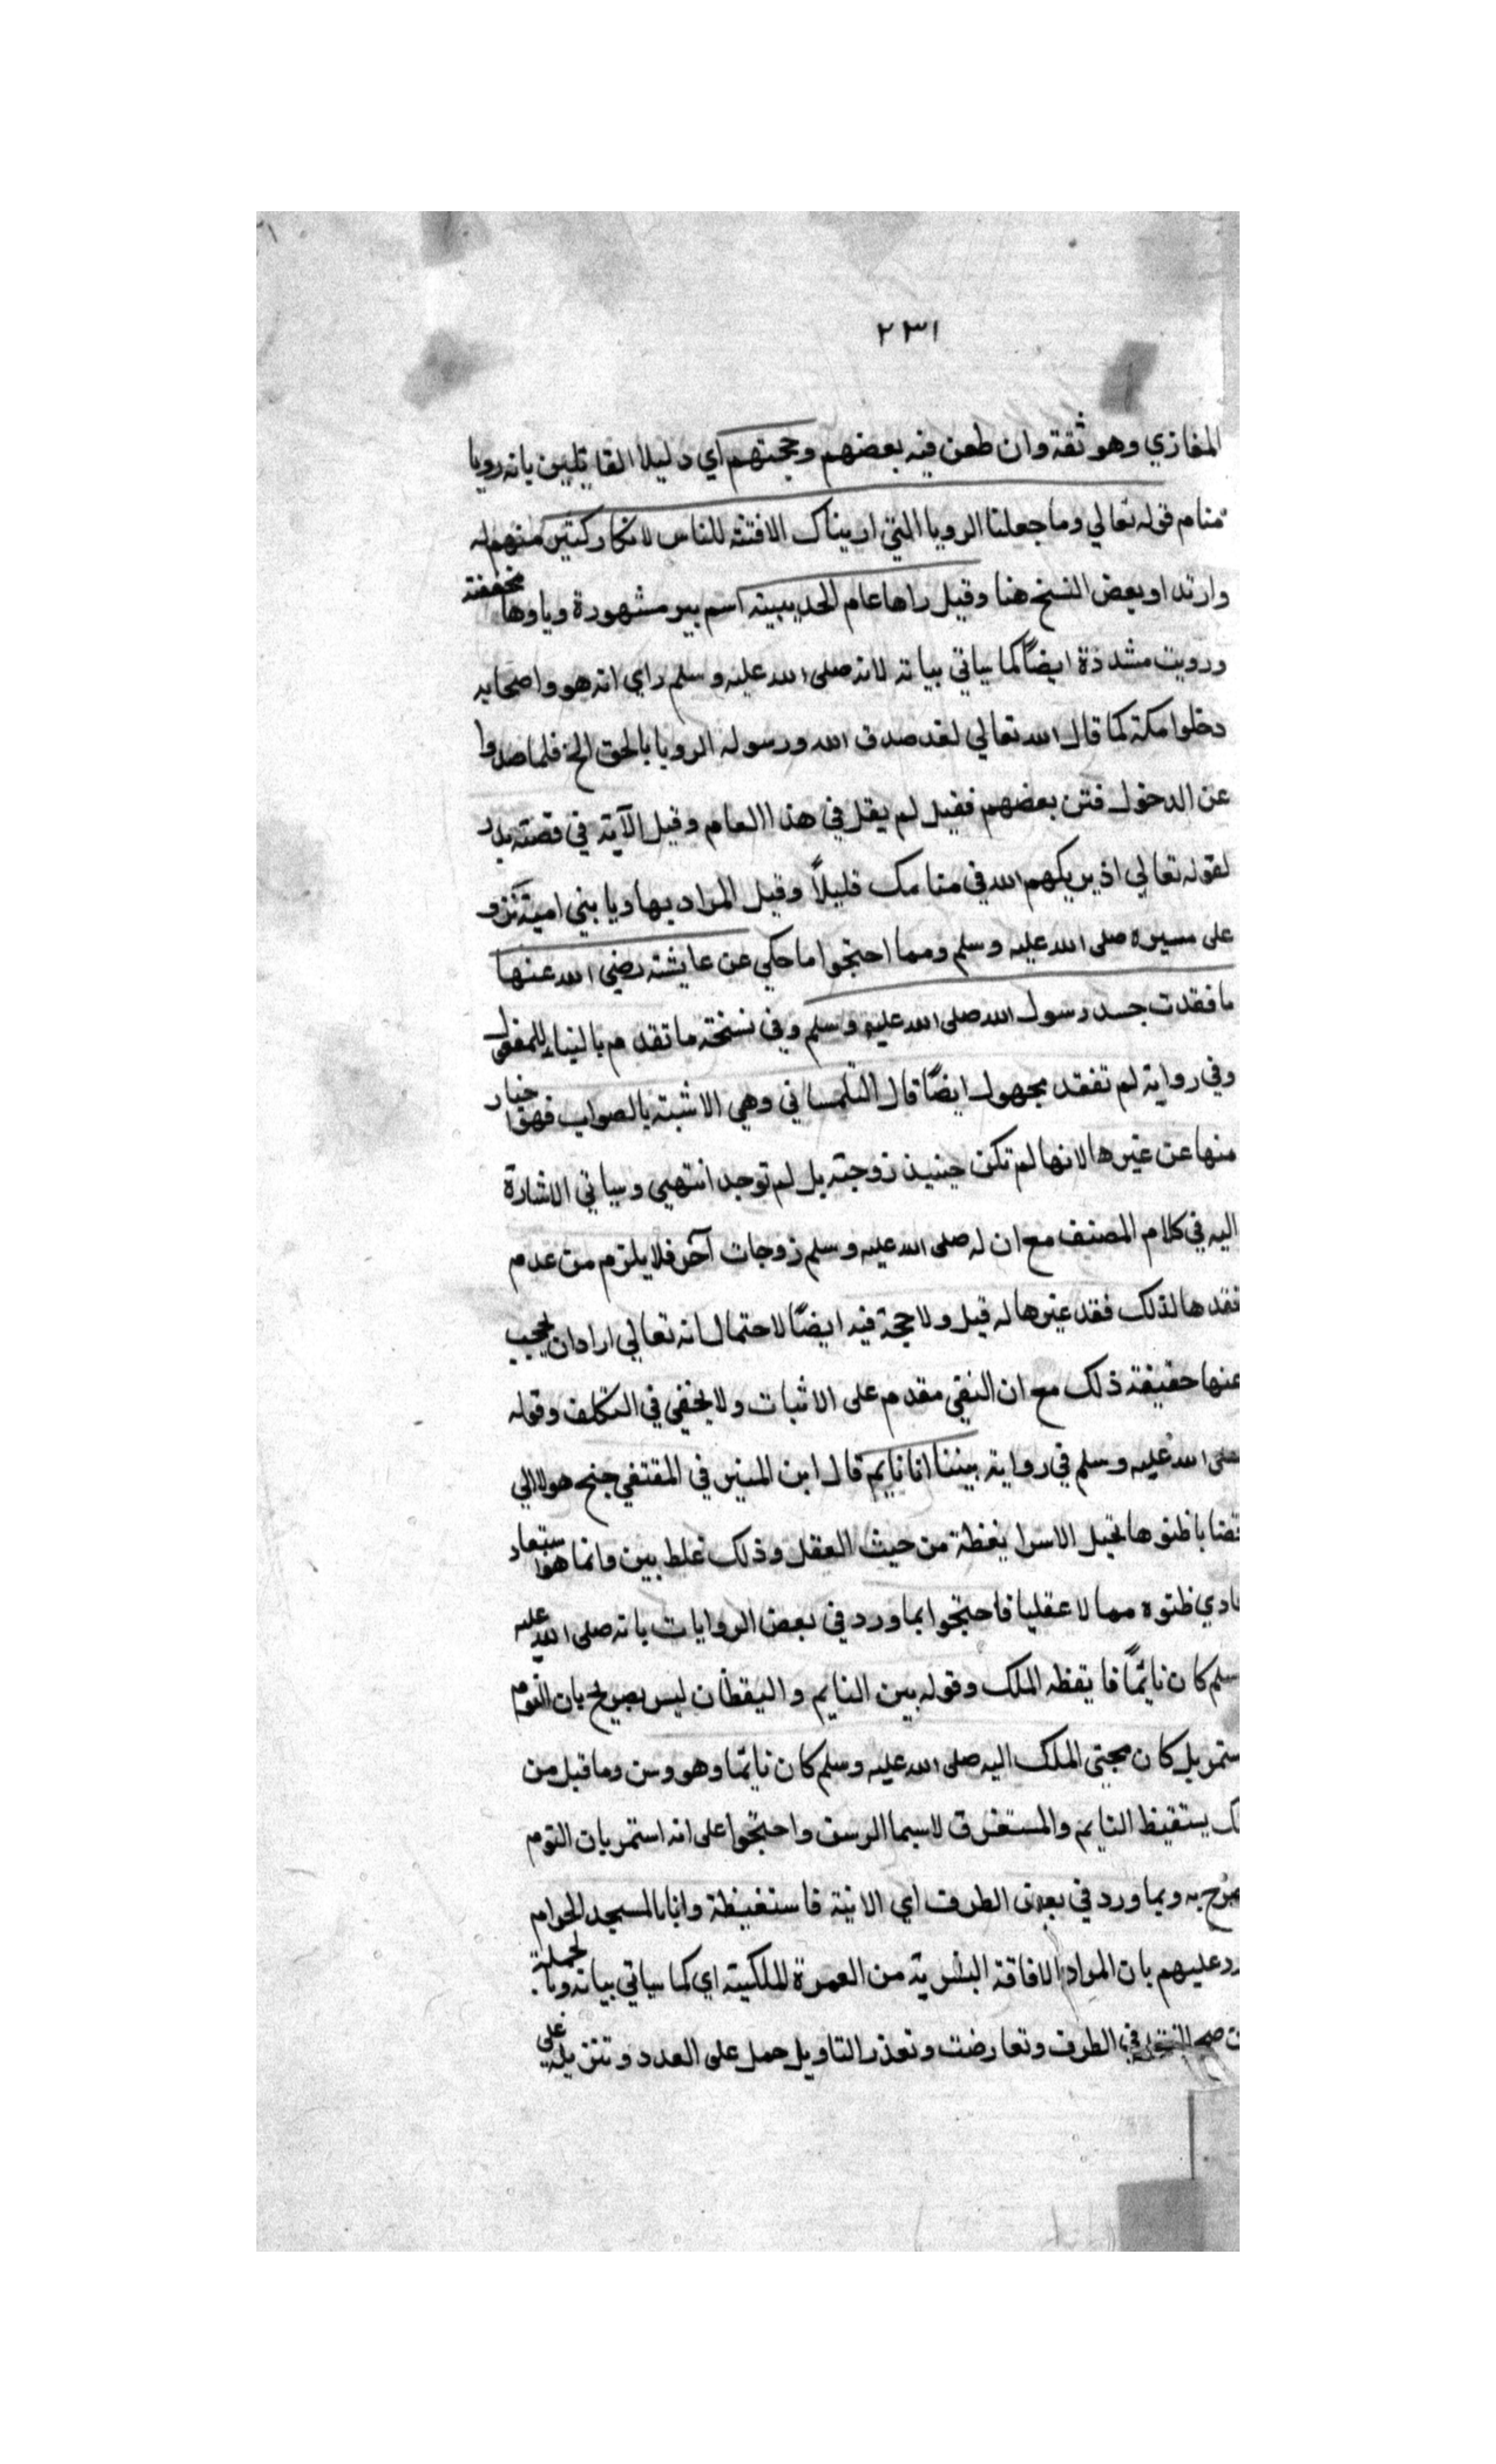 ٢٣١
المغازي وهو ثقة وان طعن فيه بعضهم وحجتهم اي دليلا القايلين بانه رويا
منام قوله تعالي وما جعلنا الرويا التي اريناك الا فتنة للناس لانكار كثير منهم له
وارتدا وبعض النسخ هنا وقيل راها عام الحديبية اسم بير مشهورة وياوها مخففة
ورويت مشددة ايضًا كما سياتي بيانه لانه صلى الله عليه وسلم راي انه هو واصحابه
دخلوا مكة كما قال الله تعالي لقد صدق الله ورسوله الرويا بالحق الخ فلما صدوا
عن الدخول فتن بعضهم فقيل لم يقل في هذا العام وقيل الآية في قصة بدر
لقوله تعالي اذ يريكهم الله في منامك قليلاً وقيل المراد بها رويا بني امية تنزو
على مسيره صلى الله عليه وسلم ومما احتجوا ما حكي عن عايشة رضي الله عنها
ما فقدت جسد رسول الله صلى الله عليه وسلم وفي نسخة ما تقدم بالبناء للمفعول
وفي رواية لم تفقد مجهول ايضًا قال التلمساني وهي الاشبه بالصواب فهو اخبار
منها عن غيرها لانها لم تكن حينيذ زوجته بل لم توجد انتهي وسياتي الاشارة
اليه في كلام المصنف مع ان له صلى الله عليه وسلم زوجات آخر فلا يلزم من عدم
فقدها لذلك فقد غيرها له قيل ولا حجة فيه ايضًا لاحتمال انه تعالي اراد ان يحجب
عنها حقيقة ذلك مع ان النفي مقدم على الاثبات ولا يخفي في التكلف وقوله
صلى الله عليه وسلم في رواية بيننا انا نايم قال ابن المنير في المقتفي جنح هولا الي
قضايا ظنوها تحيل الاسرا يقظة من حيث العقل وذلك غلط بين وانما هو استبعاد
عادي ظنوه مما لا عقليا فاحتجوا بما ورد في بعض الروايات بانه صلى الله عليه
وسلم كان نايمًا فايقظه الملك وقوله بين النايم واليقظان ليس بصريح بان النوم
ستمر بل كان مجئ الملك اليه صلى الله عليه وسلم كان نايما وهو وسن وما قيل من
يستقيظ النايم والمستغرق لاسيما الوسن واحتجوا على انه استمر بان النوم
به وبما ورد في بعض الطرف اي الاتية فاستقيظة وانا بالمسجد الحرام
ورد عليهم بان المراد الافاقة البشرية من العمرة الملكية اي كما سياتي بيانه وبالجملة
صح في الطرف وتعارضت وتعذر التاويل حمل على العدد وتنزيله على